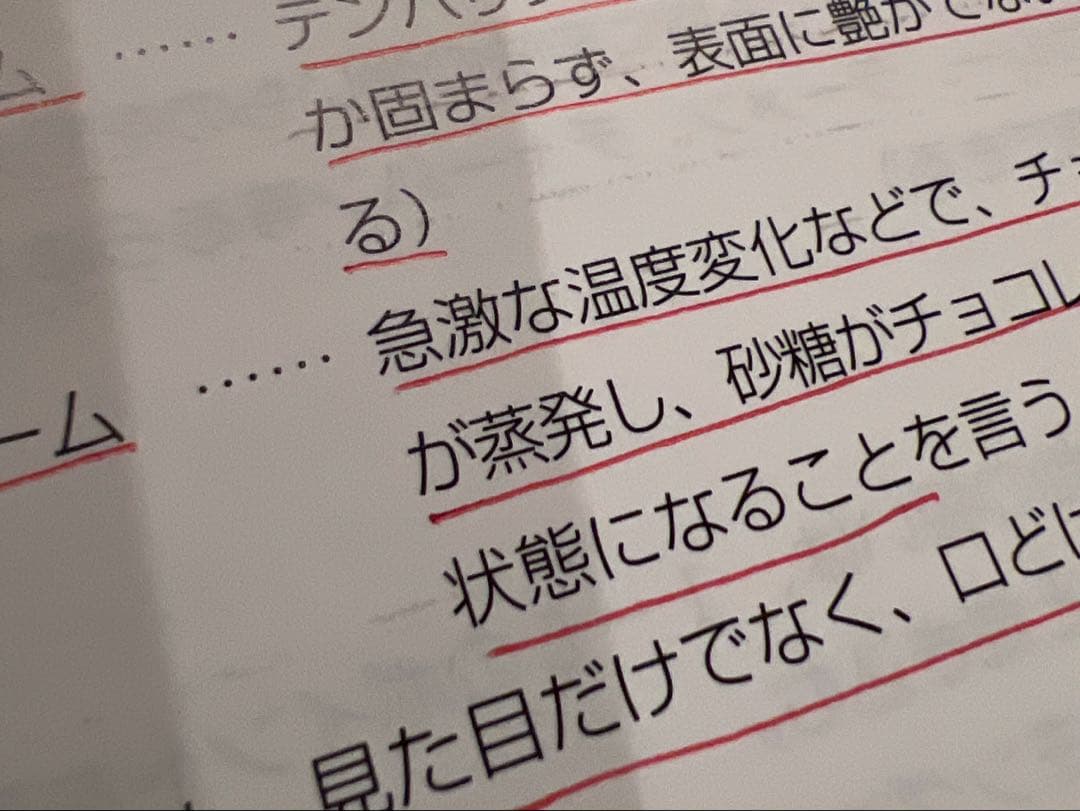 テンパリン
か固まらず、表面に艶がでない
る)
ム
急激な温度変化などで、チョ
ーム ……
が蒸発し、砂糖がチョコレ
状態になることを言う
見た目だけでなく、口どけ